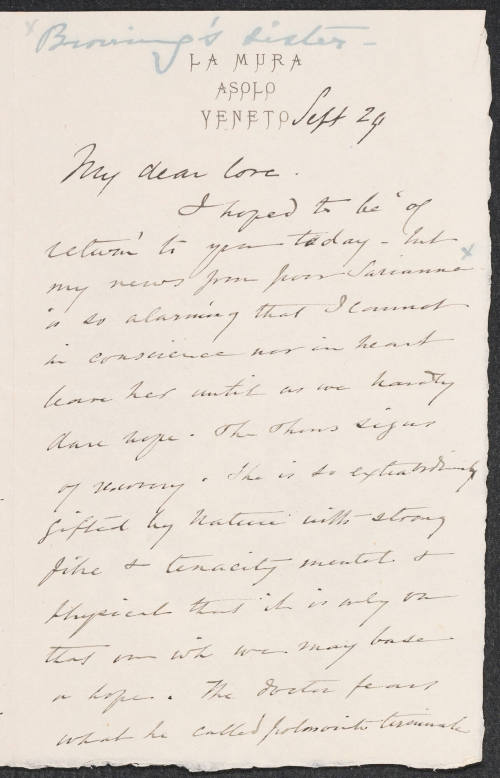 Browning's sister -
LA MURA
ASOLO
VENETO
Sept 29
My dear love.
I hoped to be "of
return" to you today - but
my news from poor Sarianna
is so alarming that I cannot
in conscience nor in heart
leave her until as we hardly
dare hope. She shows signs
of recovery. She is so extraordinarily
gifted by Nature with strong
fibre & tenacity mental &
physical that it is only on
that on wh we may base
a hope. The doctor fears
what he called polmonite terminale